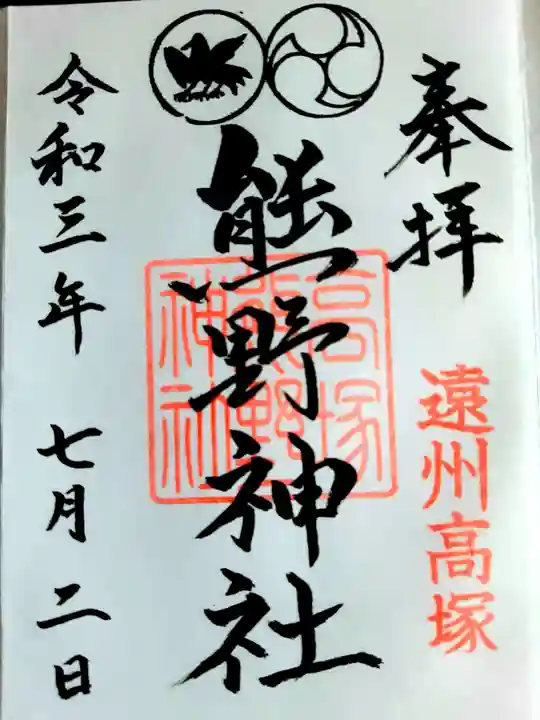 奉拝
遠州高塚
熊野神社
高塚
熊野
神社
令和三年 七月 二日